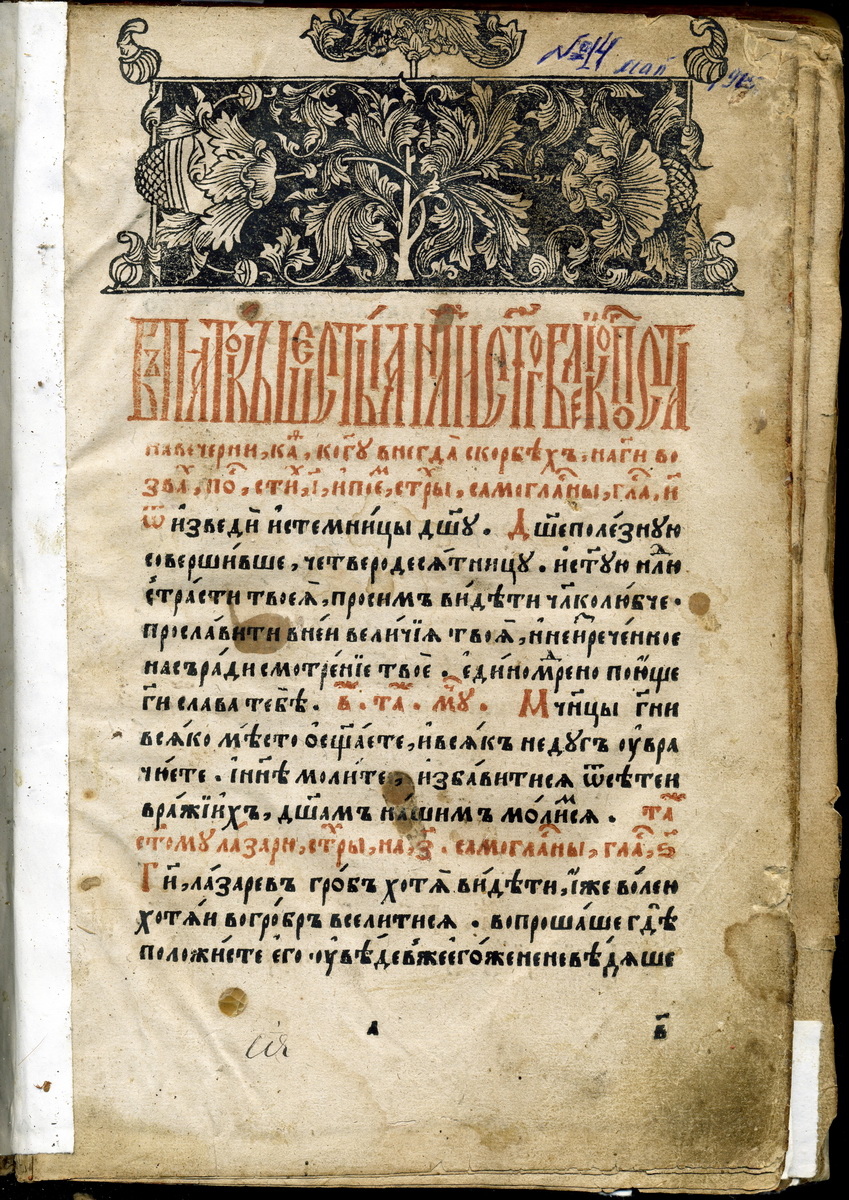 № 14 май
въ пато́къ шесты́ѧ н҃ли ст҃го вели́ко поста
навечерни, ка҃, ког҃у внегда̀ скорбѣхъ, на г҃и во
зва̑, по̑, сти̑, і҃, и пое̑, ст҃ры, самогла̑ны, гла̑, и҃
Ѿ и҆зведѝ и҆стемни́цы дш҃у . Дш҃еполе́зную
соверши́вше, четверодесѧ́тницу . и҆ст҃ую нл҃ю
стра́сти твоеѧ̀, просимъ ви́дѣти чл҃колю́бче .
просла́вити в не́и вели́чїѧ твоѧ̀, и҆ неи҆зрече́нное
насъ ра́ди смотре́нїе твоѐ . є҆диномд҃рено пою́ще
гд҃и слава тебѣ̀ . в҃ . та̑ . мч҃у . Мч҃ницы гд҃ни
всѧ́ко мѣ́сто ѡ҆сщ҃а́ете, и҆ всѧ́къ неду́гъ оу҆вра
чю́ете . и҆ нн҃ѣ моли́те, и҆зба́витисѧ ѿ сѣ́теи
вра́жїихъ, дш҃амъ на́шимъ мо́лимсѧ . та̑
ст҃ому ла́зарю, ст҃ры, на, з҃ . самогла̑ны, гла̑, ѕ҃
Гд҃и, ла́заревъ гро́бъ хотѧ̀ ви́дѣти, і҆́же во́лею
хотѧ́и во гро́бръ вселитисѧ . вопроша́ше гдѣ̀
положи́сте є҆го̀ . оу҆вѣ́девъ же є҆го́же не невѣ́дѧше
сїѧ
а
в҃